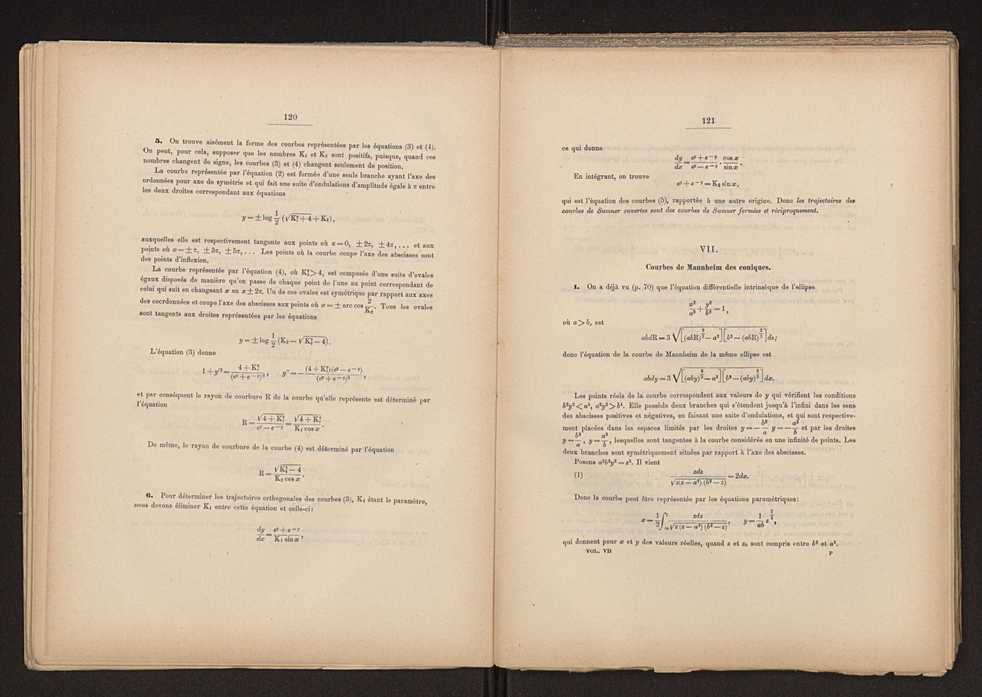 120
5. On trouve aisément la forme des courbes représentées par les équations (3) et (4).
On peut, pour cela, supposer que les nombres K₁ et K₂ sont positifs, puisque, quand ces
nombres changent de signe, les courbes (3) et (4) changent seulement de position.
La courbe représentée par l'équation (2) est formée d'une seule branche ayant l'axe des
ordonnées pour axe de symétrie et qui fait une suite d'ondulations d'amplitude égale à π entre
les deux droites correspondant aux équations
y = ± log 1/2 (√(K₁² + 4) + K₁),
auxquelles elle est respectivement tangente aux points où x = 0, ± 2π, ± 4π, ... et aux
points où x = ± π, ± 3π, ± 5π, ... Les points où la courbe coupe l'axe des abscisses sont
des points d'inflexion.
La courbe représentée par l'équation (4), où K₂² > 4, est composée d'une suite d'ovales
égaux disposés de manière qu'on passe de chaque point de l'une au point correspondant de
celui qui suit en changeant x en x ± 2π. Un de ces ovales est symétrique par rapport aux axes
des coordonnées et coupe l'axe des abscisses aux points où x = ± arc cos 2/K₂. Tous les ovales
sont tangents aux droites représentées par les équations
y = ± log 1/2 (K₂ + √(K₂² − 4)).
L'équation (3) donne
1 + y'² = (4 + K₁²)/(eʸ + e⁻ʸ)², y'' = − (4 + K₁²)(eʸ − e⁻ʸ)/(eʸ + e⁻ʸ)³,
et par conséquent le rayon de courbure R de la courbe qu'elle représente est déterminé par
l'équation
R = √(4 + K₁²)/(eʸ − e⁻ʸ) = √(4 + K₁²)/(K₁ cos x).
De même, le rayon de courbure de la courbe (4) est déterminé par l'équation
R = √(K₂² − 4)/(K₂ cos x).
6. Pour déterminer les trajectoires orthogonales des courbes (3), K₁ étant le paramètre,
nous devons éliminer K₁ entre cette équation et celle-ci:
dy/dx = (eʸ + e⁻ʸ)/(K₁ sin x),
121
ce qui donne
dy/dx = (eʸ + e⁻ʸ)/(eʸ − e⁻ʸ) · cos x/sin x.
En intégrant, on trouve
eʸ + e⁻ʸ = K₂ sin x,
qui est l'équation des courbes (5), rapportée à une autre origine. Donc les trajectoires des
courbes de Sumner ouvertes sont des courbes de Sumner fermées et réciproquement.
VII.
Courbes de Mannheim des coniques.
1. On a déjà vu (p. 70) que l'équation différentielle intrinsèque de l'ellipse
x²/a² + y²/b² = 1,
où a > b, est
abdR = 3 √([(abR)^(2/3) − a²][b² − (abR)^(2/3)]) ds;
donc l'équation de la courbe de Mannheim de la même ellipse est
abdy = 3 √([(aby)^(2/3) − a²][b² − (aby)^(2/3)]) dx.
Les points réels de la courbe correspondent aux valeurs de y qui vérifient les conditions
b²y² < a⁴, a²y² > b⁴. Elle possède deux branches qui s'étendent jusqu'à l'infini dans les sens
des abscisses positives et négatives, en faisant une suite d'ondulations, et qui sont respective-
ment placées dans les espaces limités par les droites y = − b²/a, y = − a²/b et par les droites
y = b²/a, y = a²/b, lesquelles sont tangentes à la courbe considérée en une infinité de points. Les
deux branches sont symétriquement situées par rapport à l'axe des abscisses.
Posons a²b²y² = z³. Il vient
(1) zdz/√(z(z − a²)(b² − z)) = 2dx.
Donc la courbe peut être représentée par les équations paramétriques:
x = 1/2 ∫ zdz/√(z(z − a²)(b² − z)), y = 1/ab z^(3/2),
qui donnent pour x et y des valeurs réelles, quand z et z₀ sont compris entre b² et a².
VOL. VII
P